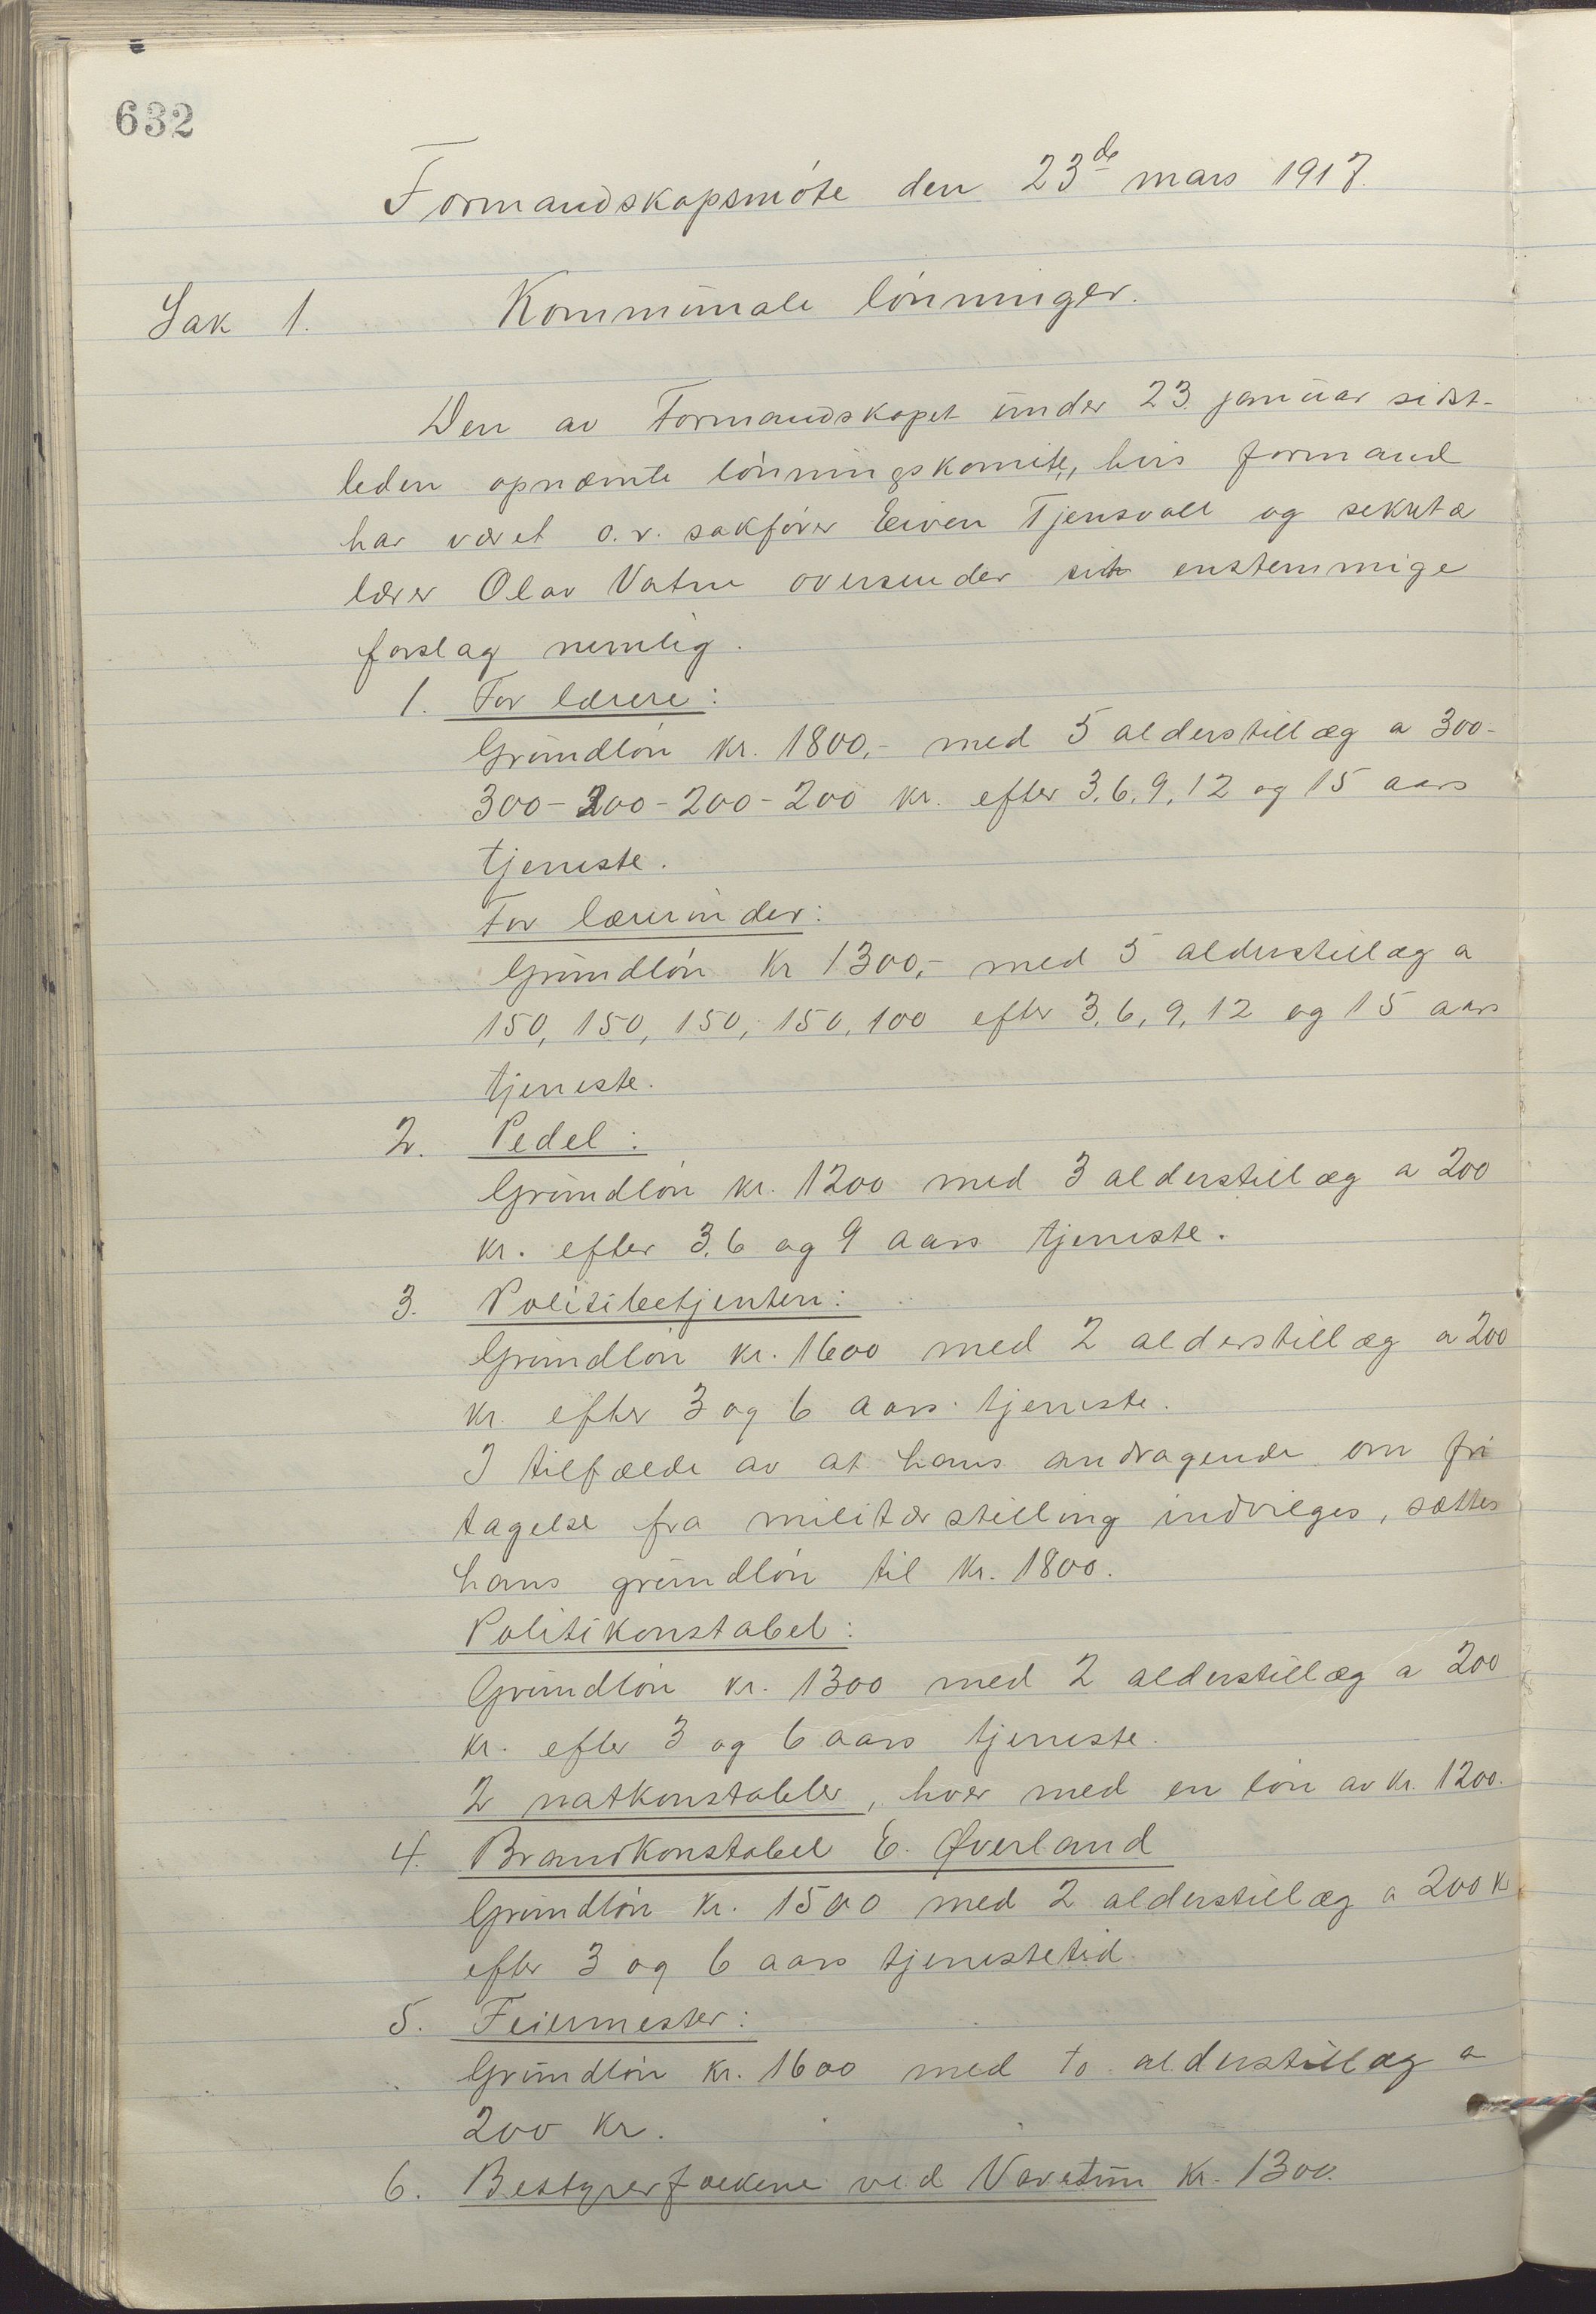 632
Formandskapsmöte den 23de mars 1917.
Sak 1. Kommunale lönninger.
Den av Formandskapet under 23. januar sidst-
leden opnævnte lönningskomite, hvis formand
har været o.r. sakförer Eiven Tjensvoll og sekretær
lærer Olav Vatne oversender sit enstemmige
forslag nemlig.
1. For lærere:
Grundlön kr. 1800,- med 5 alderstillæg a 300-
300-200-200-200 kr. efter 3, 6, 9, 12 og 15 aars
tjeneste.
For lærerinder:
Grundlön kr 1300,- med 5 alderstillæg a
150, 150, 150, 150, 100 efter 3, 6, 9, 12 og 15 aars
tjeneste.
2. Pedel:
Grundlön kr. 1200 med 3 alderstillæg a 200
kr. efter 3, 6 og 9 aars tjeneste.
3. Politibetjenten:
Grundlön kr. 1600 med 2 alderstillæg a 200
kr. efter 3 og 6 aars tjeneste.
I tilfælde av at hans andragende om fri
tagelse fra militærstilling indvilges, sættes
hans grundlön til kr. 1800.
Politikonstabel:
Grundlön kr. 1300 med 2 alderstillæg a 200
kr. efter 3 og 6 aars tjeneste.
2 natkonstabler, hver med en lön av kr. 1200.
4. Brandkonstabel E. Øverland
Grundlön kr. 1500 med 2 alderstillæg a 200 kr
efter 3 og 6 aars tjenestetid
5. Feiermester:
Grundlön kr. 1600 med to alderstillæg a
200 kr.
6. Bestyrerfolkene ved Varatun kr. 1300.